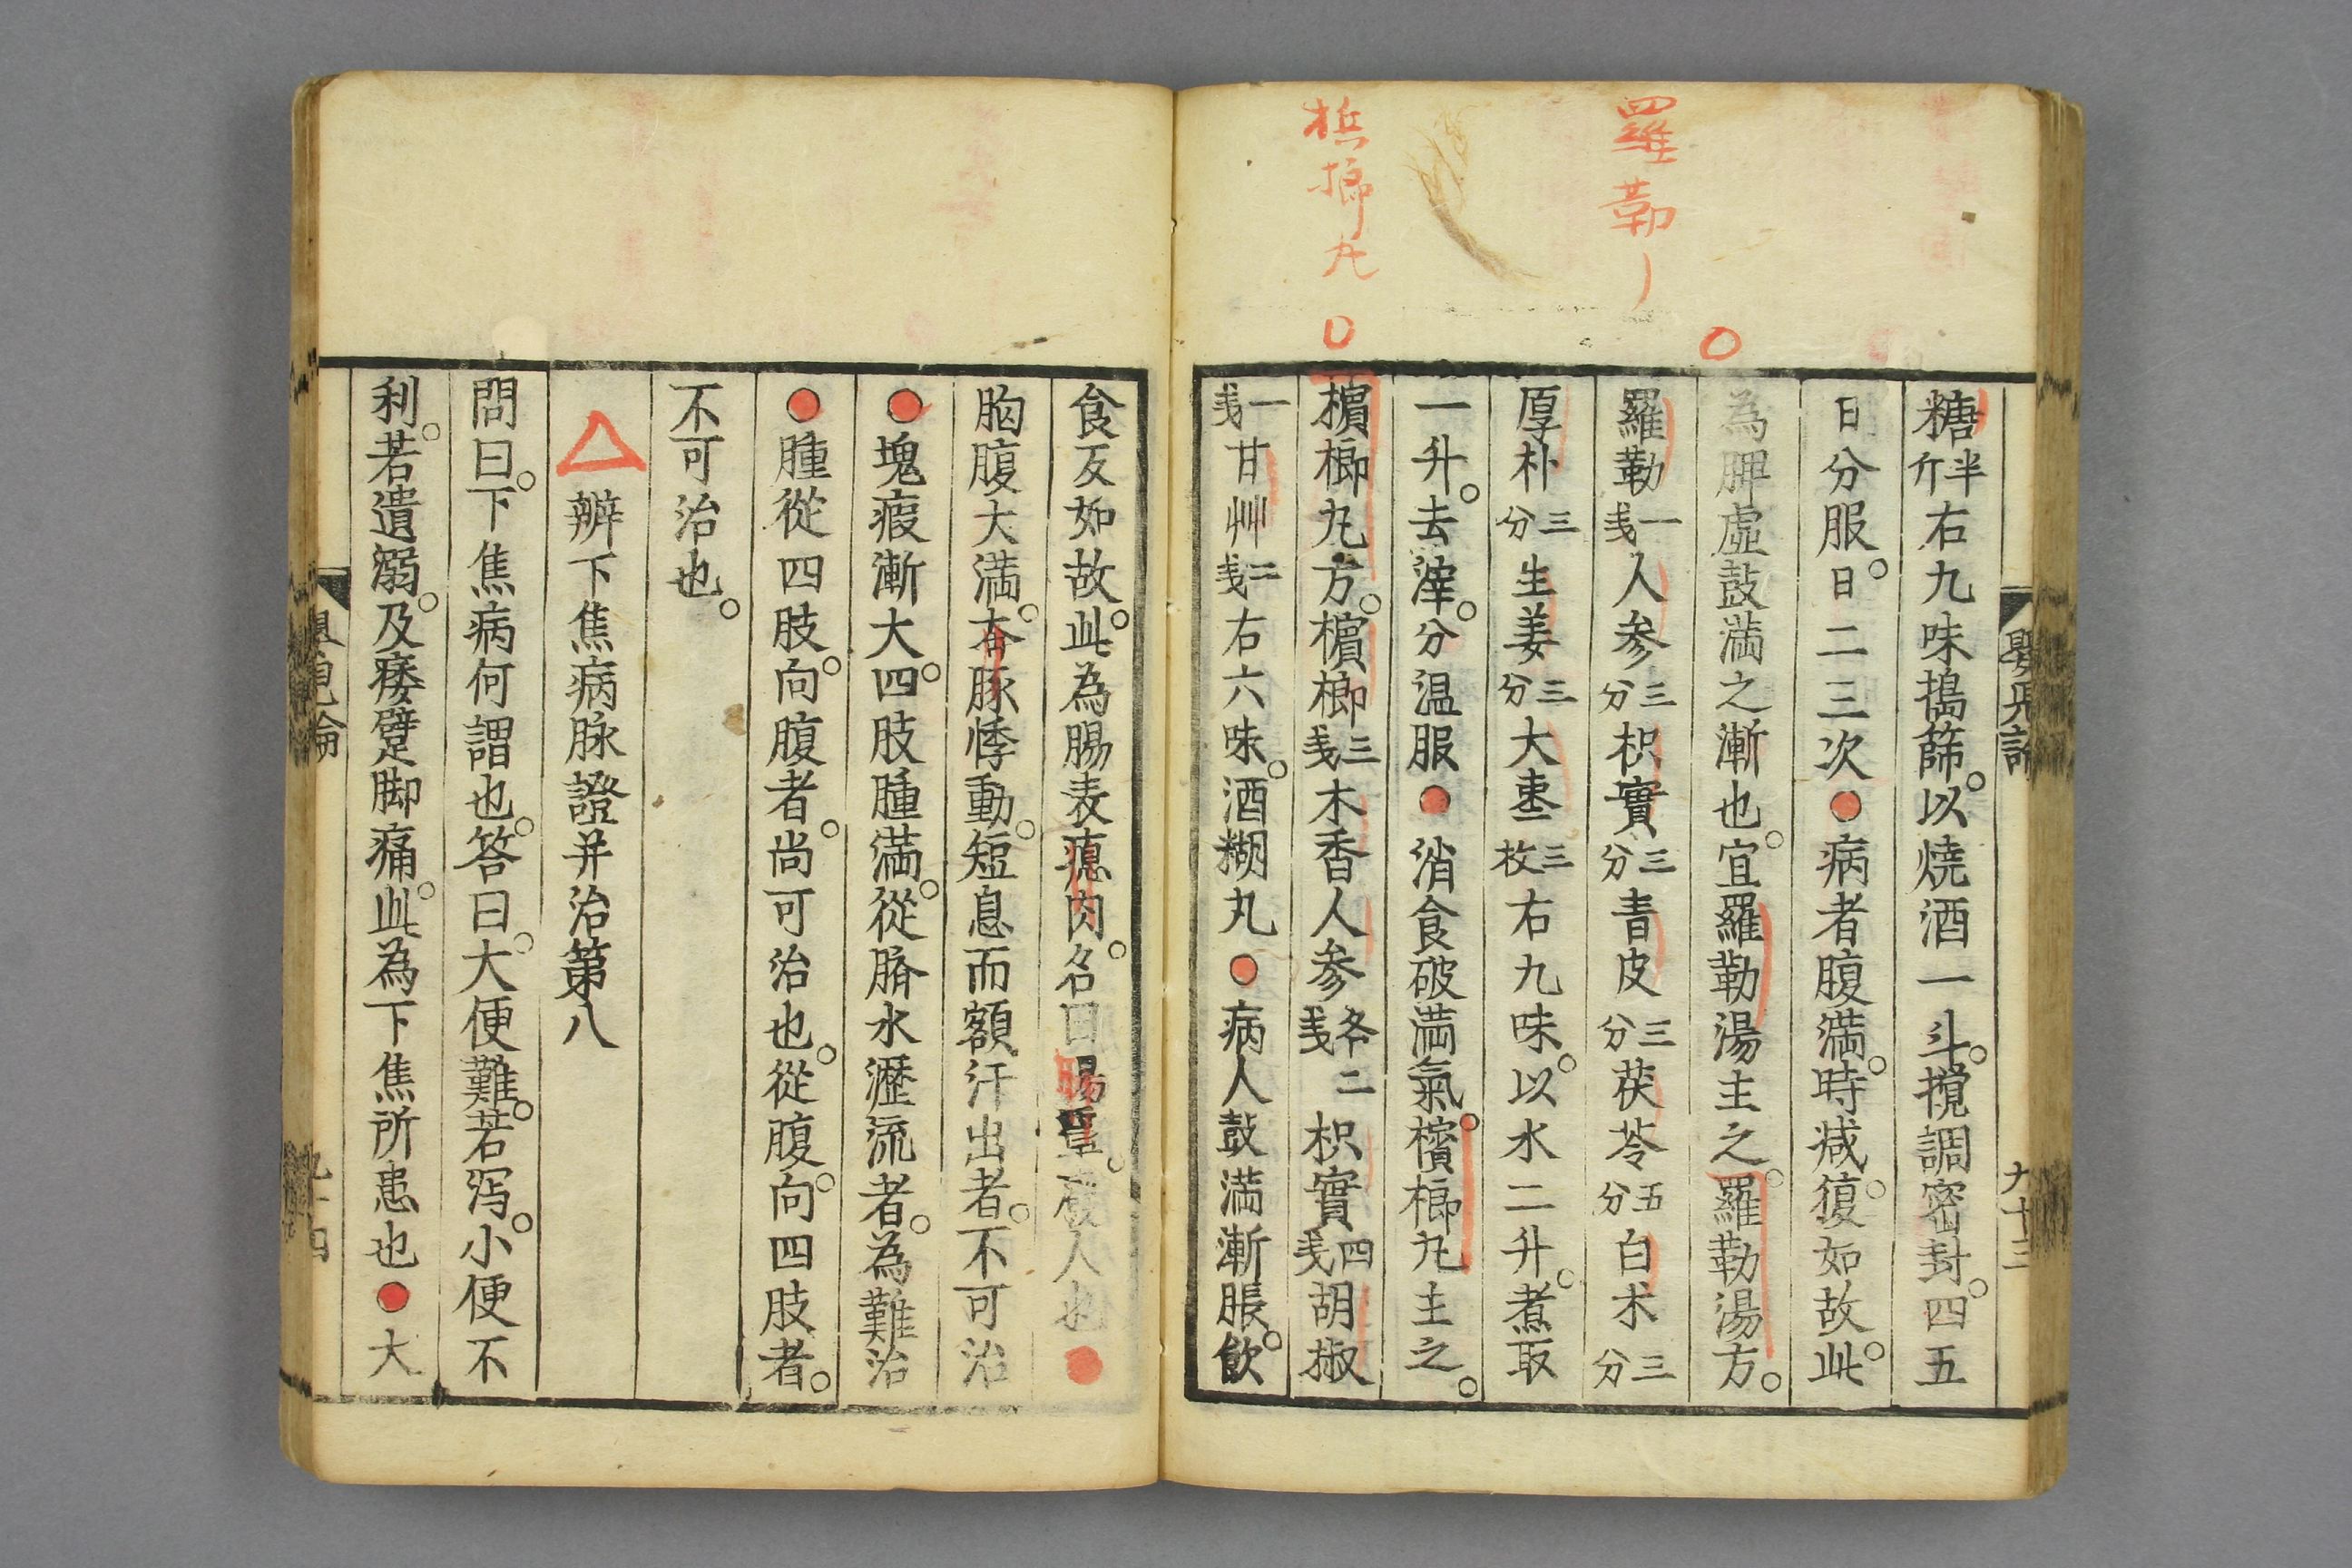 羅勒
檳榔丸
糖半斤右九味搗篩。以燒酒一斗。攪調密封。四五
日分服。日二三次●病者腹滿。時減復。如故。此
為脾虛鼓滿之漸也。宜羅勒湯主之。羅勒湯方。
羅勒一戔人參三分枳實三分青皮三分茯苓五分白朮三分
厚朴三分生姜三分大棗三枚右九味。以水二升。煮取
一升。去滓。分温服●消食破滿氣。檳榔丸主之。
檳榔丸方。檳榔三戔木香人參各二戔二枳實四戔胡椒
一戔甘艸二戔右六味。酒糊丸●病人鼓滿漸脹。飲
九十三
食反如故。此為腸表瘜肉。名曰腸覃。人也●
胸腹大滿。奔豚悸動。短息而額汗出者。不可治
●塊瘕漸大。四肢腫滿。從臍水瀝流者。為難治
●腫從四肢。向腹者。尚可治也。從腹。向四肢者。
不可治也。
△辨下焦病脉證并治第八
問曰。下焦病何謂也。答曰。大便難。若瀉。小便不
利。若遺溺。及痿躄脚痛。此為下焦所患也●大